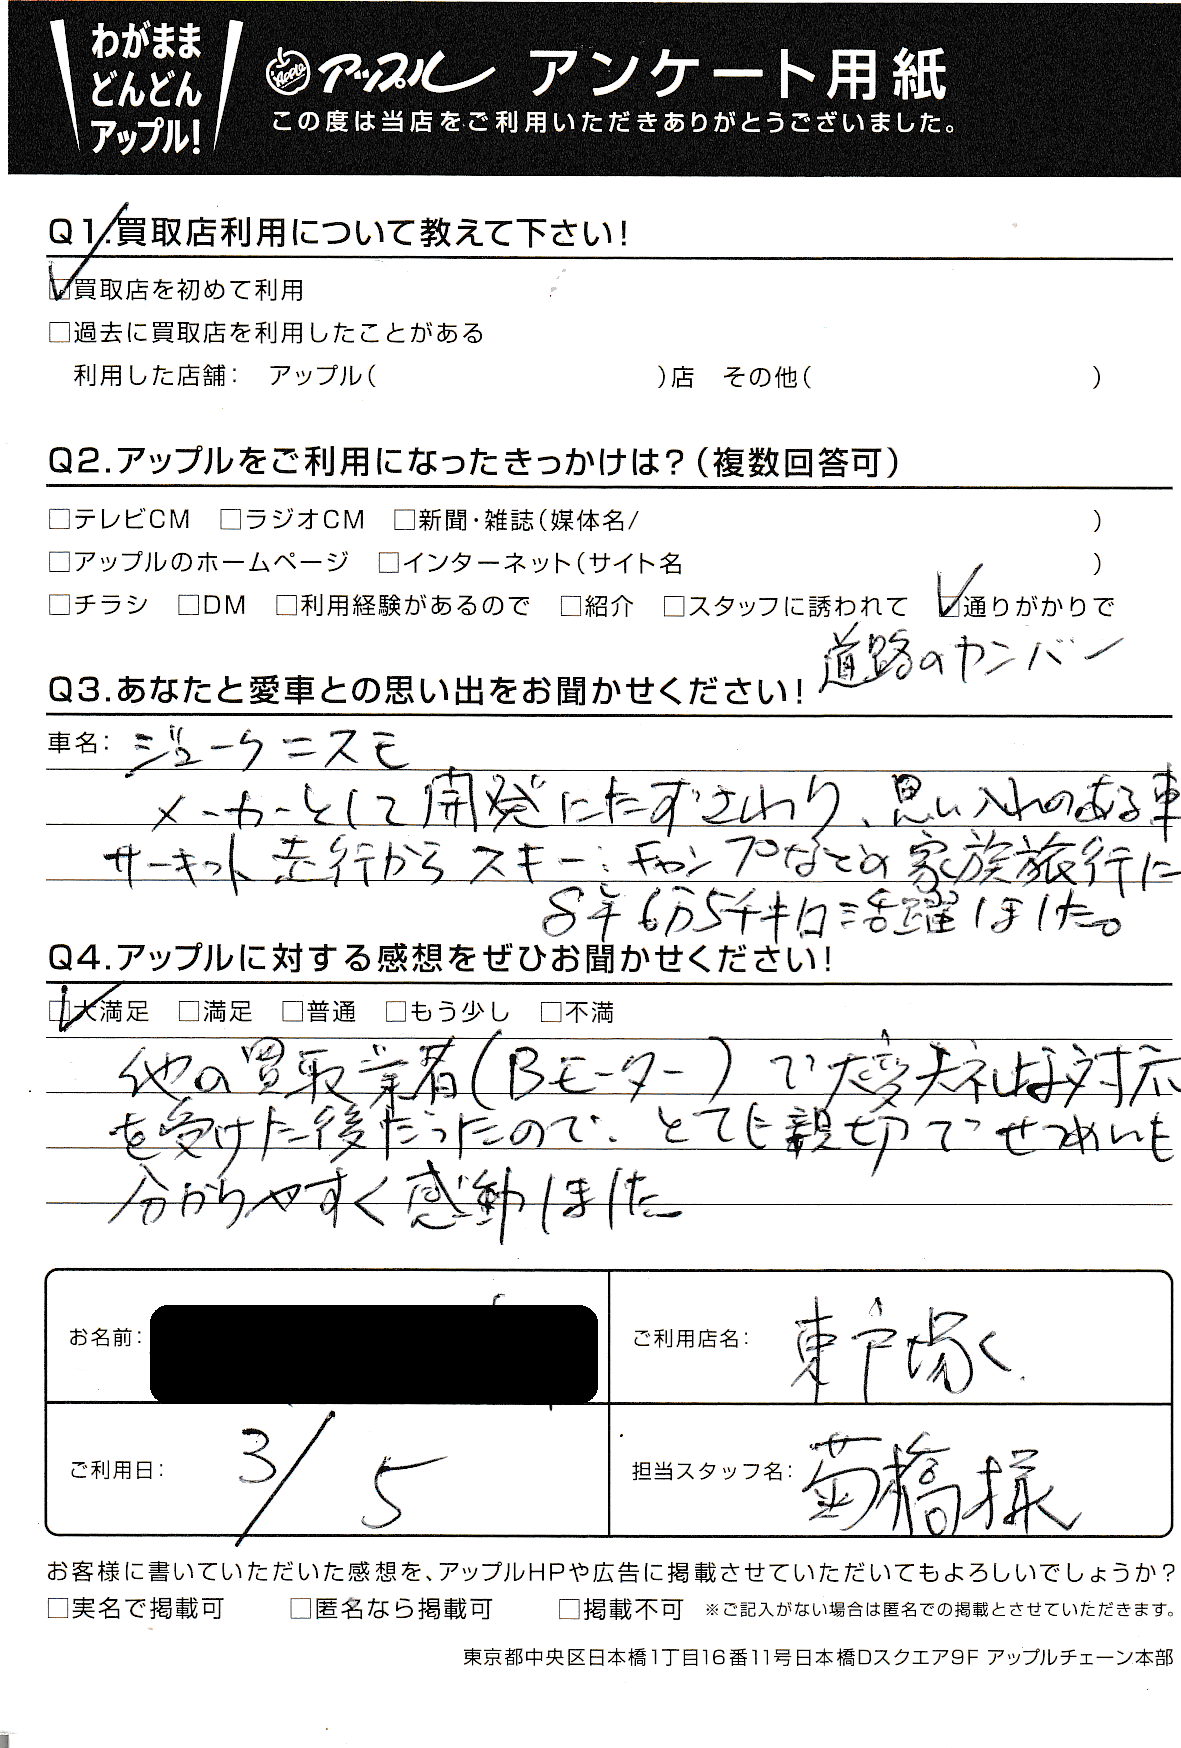 わがまま
どんどん
アップル!
Apple アップル アンケート用紙
この度は当店をご利用いただきありがとうございました。
Q1.買取店利用について教えて下さい!
☑買取店を初めて利用
□過去に買取店を利用したことがある
利用した店舗: アップル( )店 その他( )
Q2.アップルをご利用になったきっかけは?(複数回答可)
□テレビCM □ラジオCM □新聞・雑誌(媒体名/ )
□アップルのホームページ □インターネット(サイト名 )
□チラシ □DM □利用経験があるので □紹介 □スタッフに誘われて ☑通りがかりで
道路のカンバン
Q3.あなたと愛車との思い出をお聞かせください!
車名: ジューク ニスモ
メーカーとして開発にたずさわり、思い入れのある車
サーキット走行からスキー、キャンプなどの家族旅行に
8年6万5千キロ活躍しました。
Q4.アップルに対する感想をぜひお聞かせください!
☑大満足 □満足 □普通 □もう少し □不満
他の買取業者(Bモーター)で大変失礼な対応
を受けた後だったので、とても親切でせつめいも
分かりやすく感動しました
お名前:
ご利用店名: 東戸塚
ご利用日: 3/5
担当スタッフ名: 菊橋様
お客様に書いていただいた感想を、アップルHPや広告に掲載させていただいてもよろしいでしょうか?
□実名で掲載可 □匿名なら掲載可 □掲載不可 ※ご記入がない場合は匿名での掲載とさせていただきます。
東京都中央区日本橋1丁目16番11号日本橋Dスクエア9F アップルチェーン本部